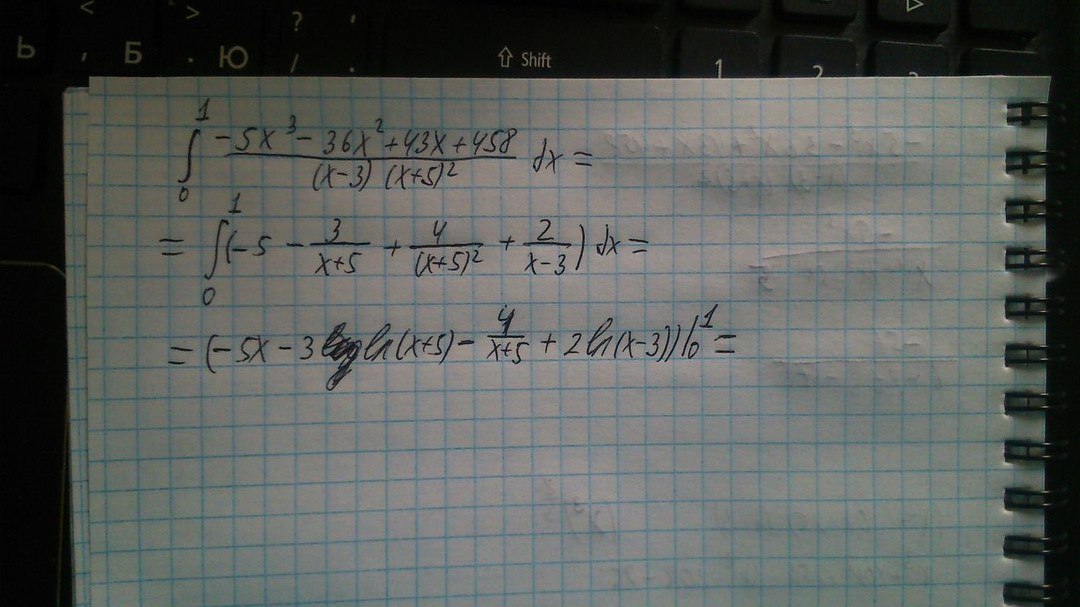 < > ? '
Ь , Б . Ю / .
⇧ Shift 1 2
∫₀¹ (-5x³ - 36x² + 43x + 458)/((x-3)(x+5)²) dx =
= ∫₀¹ (-5 - 3/(x+5) + 4/(x+5)² + 2/(x-3)) dx =
= (-5x - 3 ln(x+5) - 4/(x+5) + 2 ln(x-3))|₀¹ =